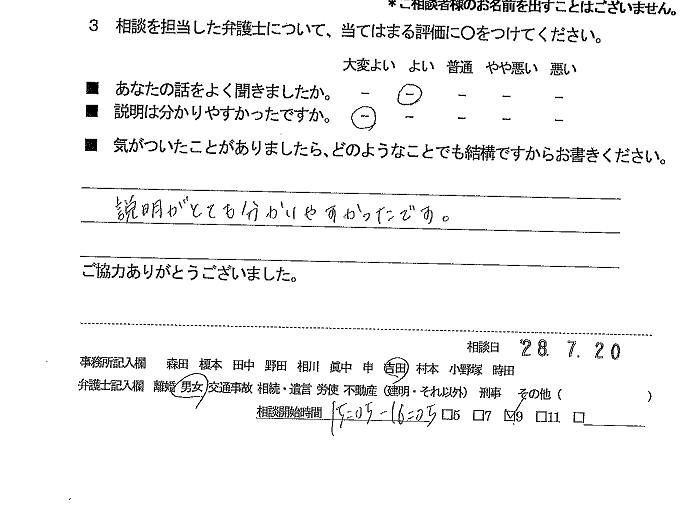 *ご相談者様のお名前を出すことはございません。
3 相談を担当した弁護士について、当てはまる評価に○をつけてください。
大変よい よい 普通 やや悪い 悪い
■ あなたの話をよく聞きましたか。 － － － － －
■ 説明は分かりやすかったですか。 － － － － －
■ 気がついたことがありましたら、どのようなことでも結構ですからお書きください。
説明がとても分かりやすかったです。
ご協力ありがとうございました。
相談日 '28. 7. 20
事務所記入欄 森田 榎本 田中 野田 相川 眞中 申 吉田 村本 小野塚 時田
弁護士記入欄 離婚 男女 交通事故 相続・遺言 労使 不動産（建明・それ以外） 刑事 その他（ ）
相談開始時間 15:05-16:05 □5 □7 ☑9 □11 □